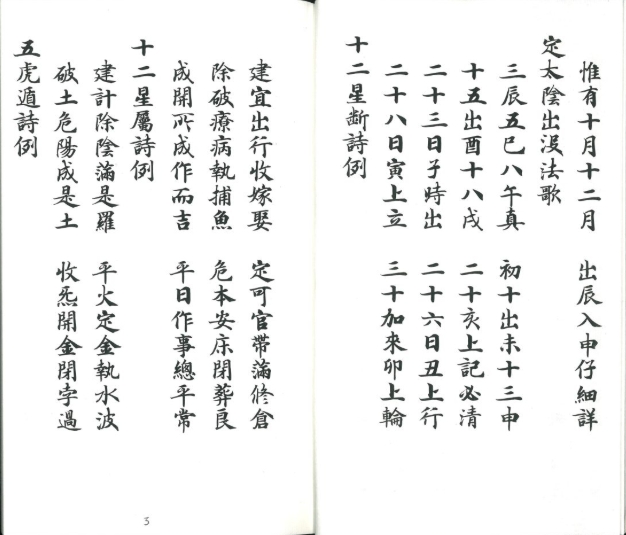 惟有十月十二月　出辰入申仔細詳
定太陰出沒法歌
三辰五巳八午真　初十出未十三申
十五出酉十八戌　二十亥上記必清
二十三日子時出　二十六日丑上行
二十八日寅上立　三十加來卯上輪
十二星斷詩例
建宜出行收嫁娶　定可官帶滿修倉
除破療病執捕魚　危本安床閉葬良
成開所成作而吉　平日作事總平常
十二星屬詩例
建計除陰滿是羅　平火定金執水波
破土危陽成是土　收炁開金閉孛過
五虎遁詩例
3